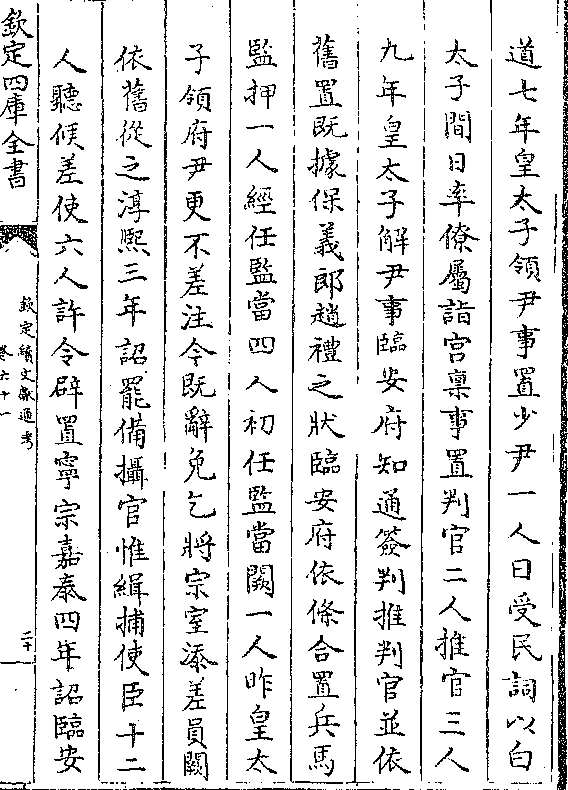 道七年皇太子領尹事置少尹一人日受民詞以白
太子間日率僚屬詣宫稟事置判官二人推官三人
九年皇太子解尹事臨安府知通簽判推判官並依
舊置既據保義郎趙禮之狀臨安府依條合置兵馬
監押一人經任監當四人初任監當闕一人昨皇太
子領府尹更不差注今既辭免乞將宗室添差員闕
依舊從之淳熙三年詔罷備攝官惟緝捕使臣十二
人聽候差使六人許令辟置寧宗嘉泰四年詔臨安
欽定四庫全書
欽定續文獻通考
卷六十一
二十